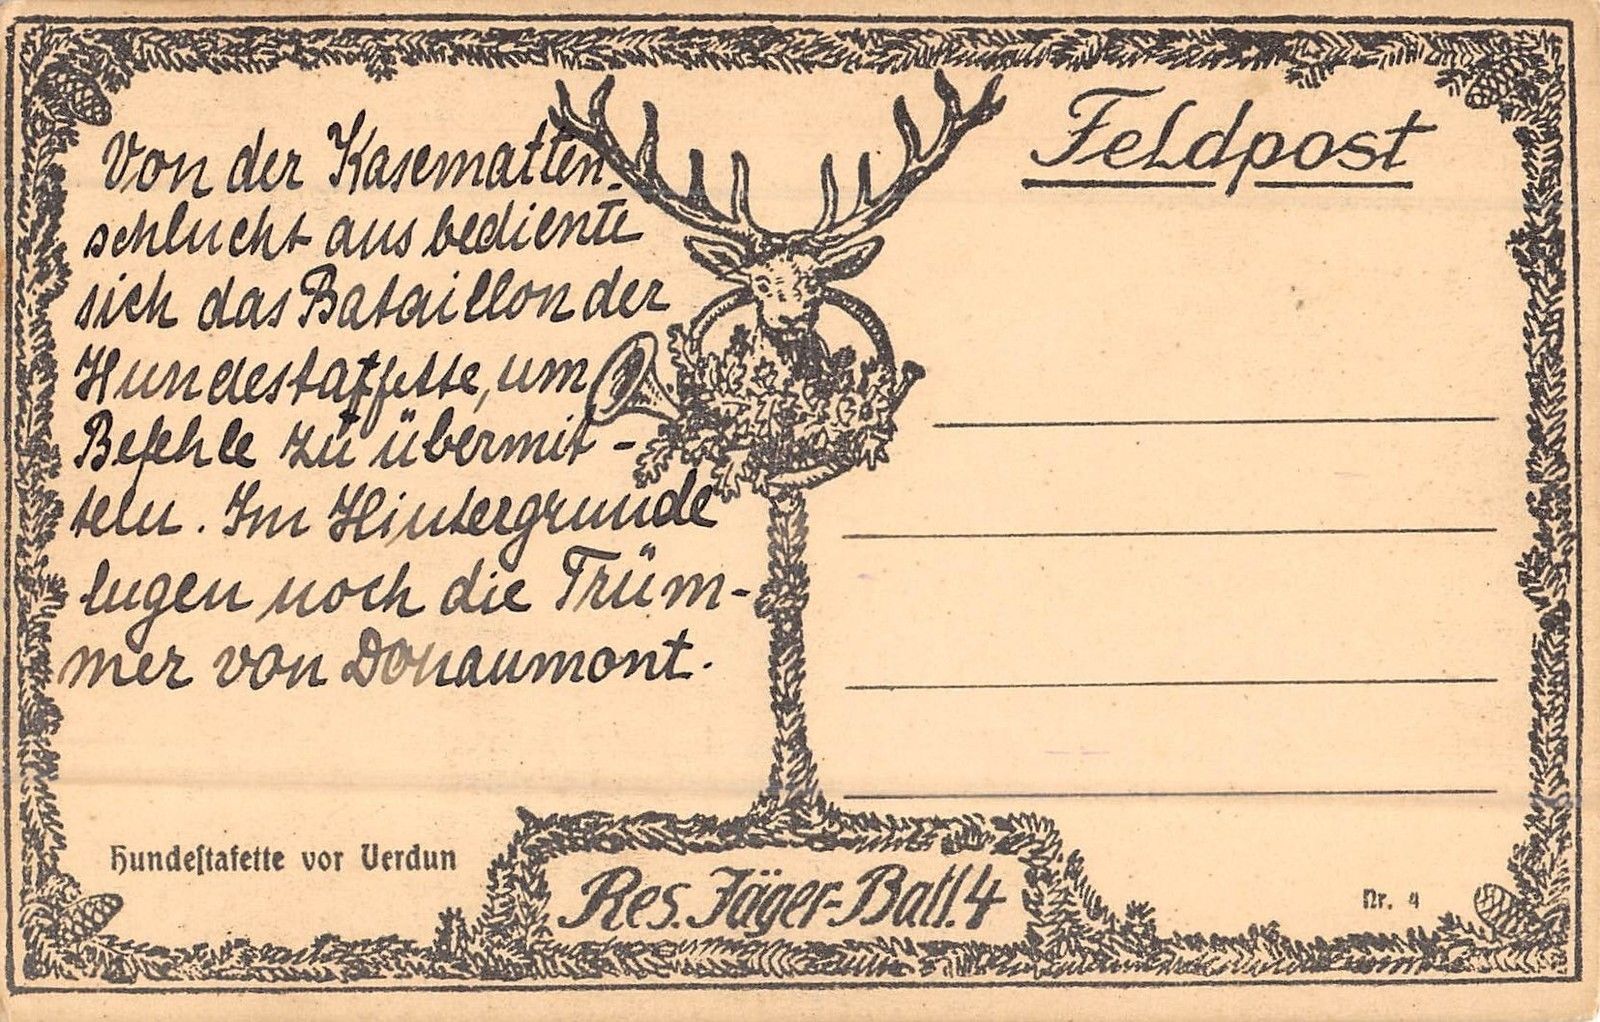 Von der Kasematten-
schlucht aus bediente
sich das Bataillon der
Hundestaffette, um
Befehle zu übermit-
teln. Im Hintergrunde
lugen noch die Trüm-
mer von Douaumont.
Feldpost
Hundestafette vor Verdun
Res. Jäger-Batl. 4
Nr. 4